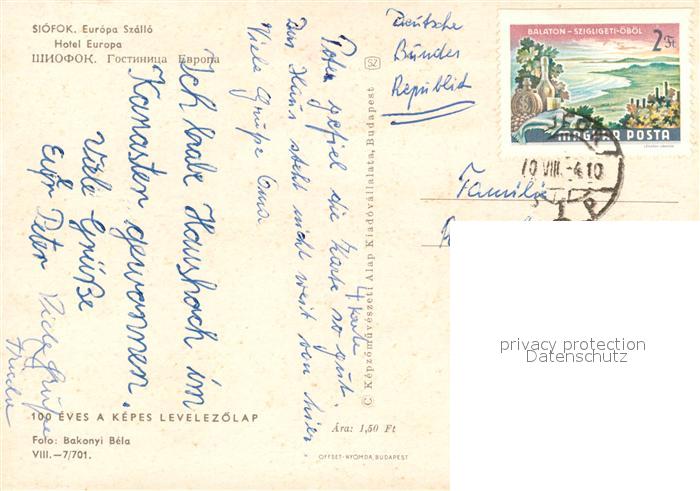 SIÓFOK. Európa Szálló
Hotel Europa
ШИОФОК. Гостиница Европа
Ich habe Haushoch im
Kanaster gewonnen.
Viele Grüße
Euer Peter
Viele Grüße
Peter gefiel die Karte so gut.
Das Haus steht nicht weit von hier.
Viele Grüße Oma
4 Karte
100 ÉVES A KÉPES LEVELEZŐLAP
Foto: Bakonyi Béla
VIII.—7/701.
SZ
© Képzőművészeti Alap Kiadóvállalata, Budapest
Ára: 1,50 Ft
OFFSET-NYOMDA, BUDAPEST
Deutsche
Bundes
Republik
BALATON – SZIGLIGETI-ÖBÖL
2 Ft
MAGYAR POSTA
70 VIII. -4.10
Familie
privacy protection
Datenschutz